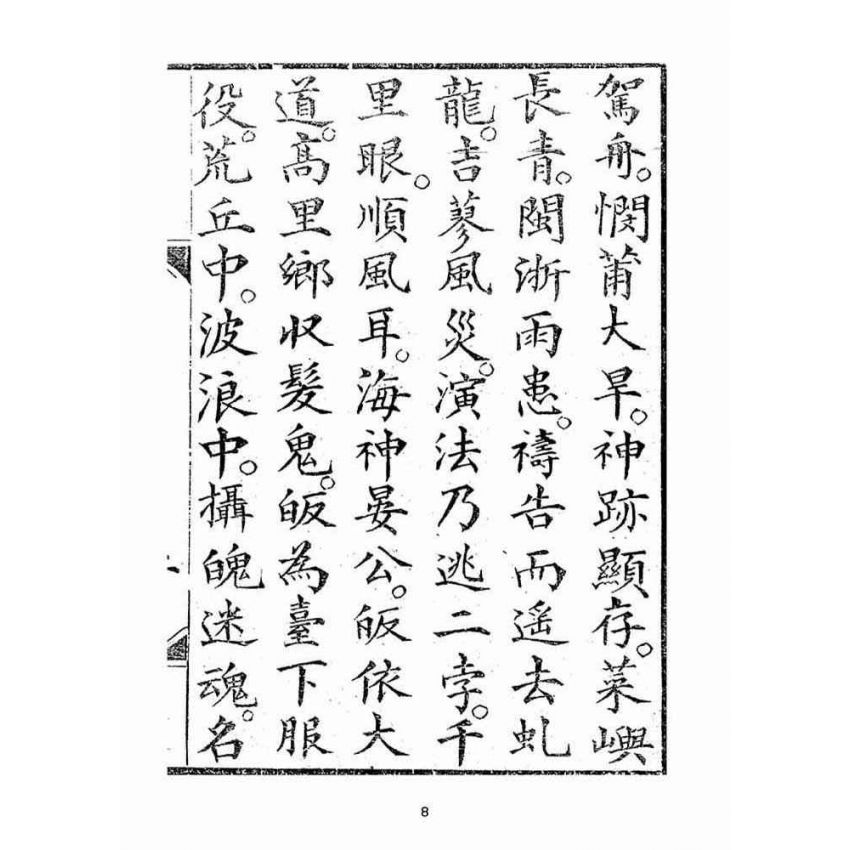 駕舟。憫莆大旱。神跡顯存。菜嶼
長青。閩浙雨患。禱告而遥去虬
龍。吉蓼風災。演法乃逃二孛。千
里眼。順風耳。海神晏公。皈依大
道。高里鄉収髮鬼。皈為臺下服
役。荒丘中。波浪中。攝魄迷魂。名
8